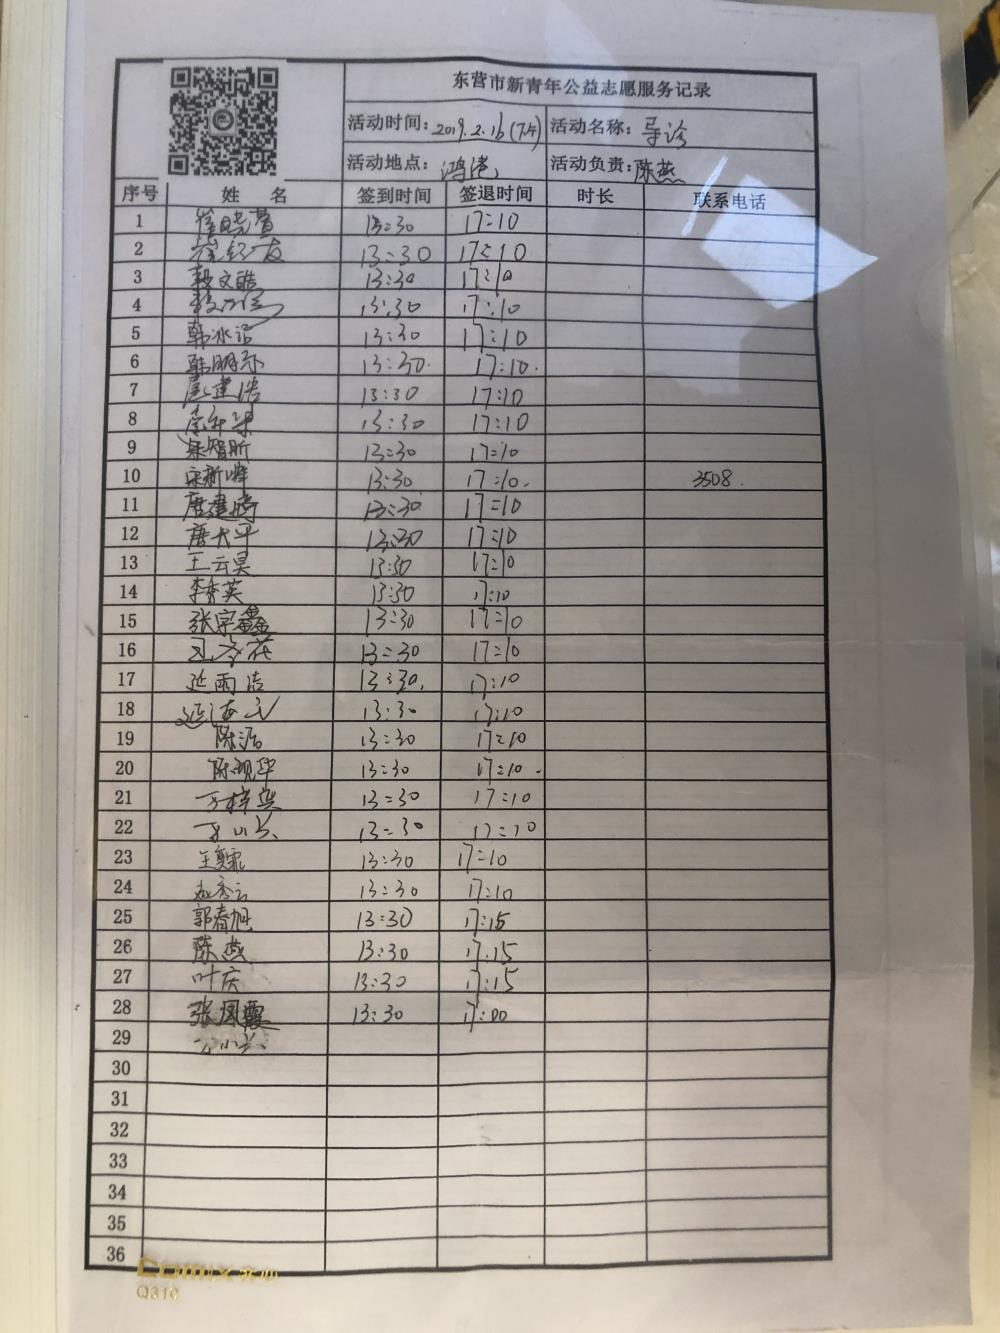 东营市新青年公益志愿服务记录
活动时间: 2019.2.16(下午) 活动名称: 导诊
活动地点: 鸿港 活动负责: 陈燕
序号 姓 名 签到时间 签退时间 时长 联系电话
1 崔晓萱 13:30 17:10
2 13:30 17:10
3 文皓 13:30 17:10
4 13:30 17:10
5 韩冰洁 13:30 17:10
6 韩明 13:30. 17:10.
7 建浩 13:30 17:10
8 13:30 17:10
9 宋智昕 13:30 17:10
10 宋新峰 13:30 17:10. 3508.
11 唐建腾 13:30 17:10
12 唐太平 13:30 17:10
13 王云昊 13:30 17:10
14 李秀英 13:30 17:10
15 张宇鑫 13:30 17:10
16 13:30 17:10
17 延雨洁 13:30. 17:10
18 延海 13:30 17:10
19 陈浩 13:30 17:10
20 陈观华 13:30 17:10.
21 13:30 17:10
22 13:30 17:10
23 王奕霏 13:30 17:10
24 赵秀云 13:30 17:10
25 郭春旭 13:30 17:15
26 陈燕 13:30 17:15
27 叶庆 13:30 17:15
28 张凤霞 13:30 17:00
29
30
31
32
33
34
35
36
Comix 齐心
Q310